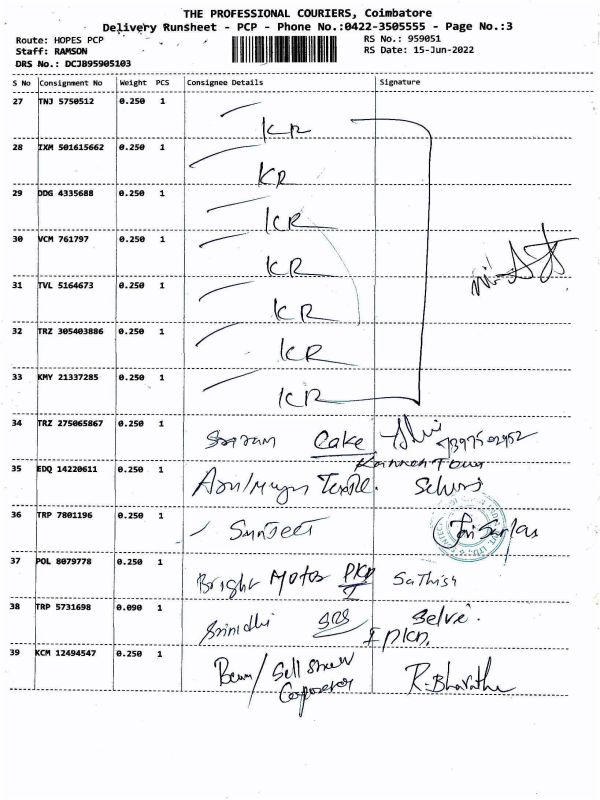 THE PROFESSIONAL COURIERS, Coimbatore
Delivery Runsheet - PCP - Phone No.:0422-3505555 - Page No.:3
Route: HOPES PCP
RS No.: 959051
Staff: RAMSON
RS Date: 15-Jun-2022
DRS No.: DCJB95905103
S No Consignment No Weight PCS Consignee Details Signature
27 TNJ 5750512 0.250 1
KR
28 IXM 501615662 0.250 1
KR
29 DDG 4335688 0.250 1
KR
30 VCM 761797 0.250 1
KR
31 TVL 5164673 0.250 1
KR
32 TRZ 305403886 0.250 1
KR
33 KMY 21337285 0.250 1
KR
34 TRZ 275065867 0.250 1
Cake
35 EDQ 14220611 0.250 1
36 TRP 7801196 0.250 1
37 POL 8079778 0.250 1
Bright Motor Sathish
38 TRP 5731698 0.090 1
Srinidhi SRS Selvi.
39 KCM 12494547 0.250 1
R. Bharathi